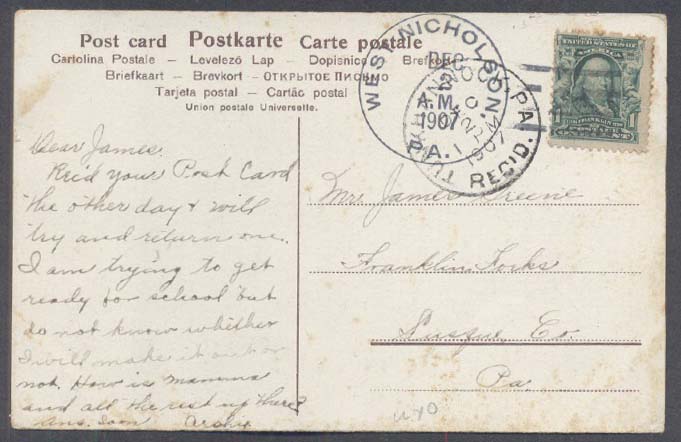 Post card Postkarte Carte postale
Cartolina Postale – Levelezö Lap – Dopisnice – Brefkort
Briefkaart – Brevkort – ОТКРЫТОЕ ПИСЬМО
Tarjeta postal – Cartão postal
Union postale Universelle.
WEST NICHOLSON, PA.
DEC
A.M.
1907
REC'D.
1907
Dear James.
Rec'd your Post Card
the other day & will
try and return one.
I am trying to get
ready for school but
do not know whether
I will make it out or
not. How is mamma
and all the rest up there?
Ans. Soon Archie
Mr. James Greene
Franklin Forks
Susque. Co.
Pa.